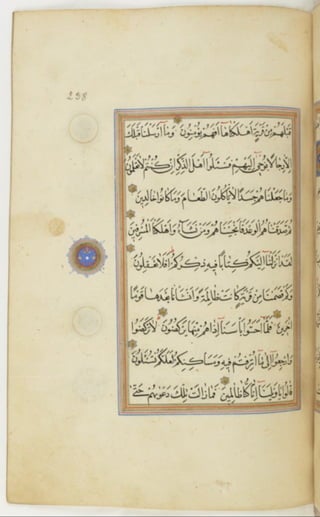 238
قبلهم من قرية اهلكناها افهم يؤمنون وما ارسلنا قبلك
الا رجالا نوحى اليهم فسئلوا اهل الذكر ان كنتم لا تعلمون
وما جعلناهم جسدا لا ياكلون الطعام وما كانوا خالدين
ثم صدقناهم الوعد فانجيناهم ومن نشاء واهلكنا المسرفين
لقد انزلنا اليكم كتابا فيه ذكركم افلا تعقلون
وكم قصمنا من قرية كانت ظالمة وانشانا بعدها قوما
اخرين فلما احسوا باسنا اذا هم منها يركضون لا تركضوا
وارجعوا الى ما اترفتم فيه ومساكنكم لعلكم تسئلون
قالوا يا ويلنا انا كنا ظالمين فما زالت تلك دعويهم حتى